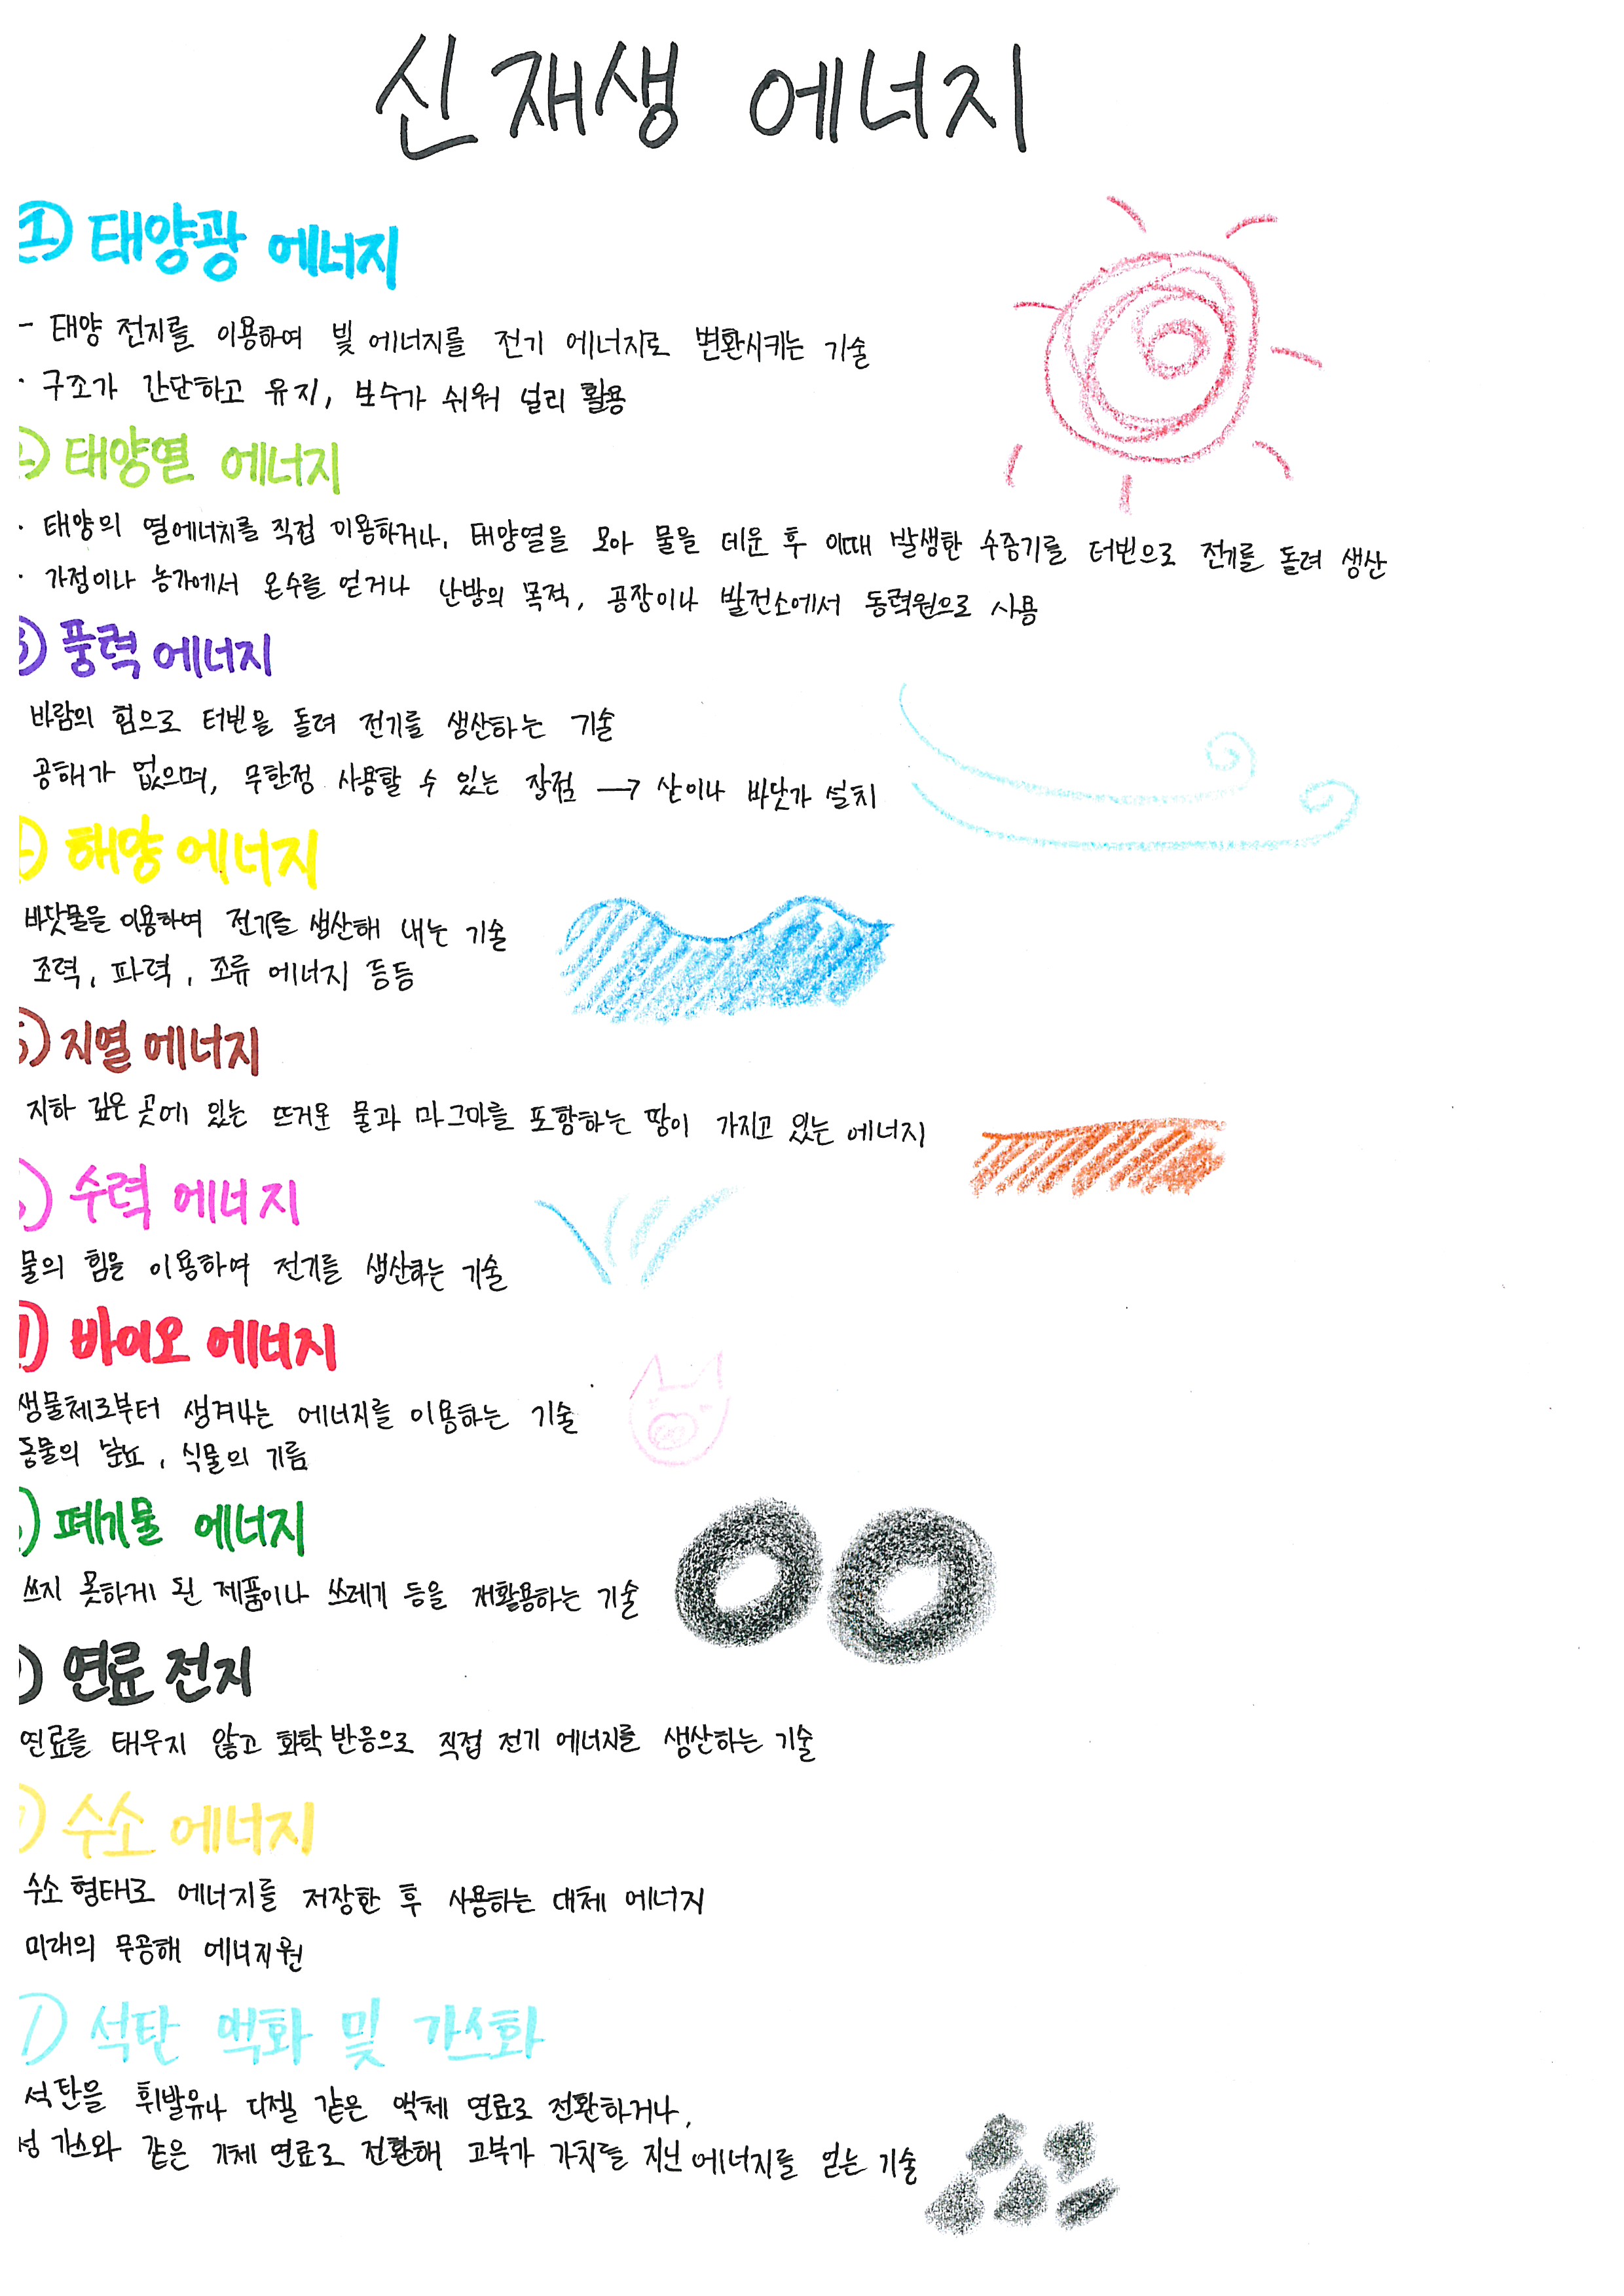 신재생 에너지
① 태양광 에너지
- 태양 전지를 이용하여 빛 에너지를 전기 에너지로 변환시키는 기술
· 구조가 간단하고 유지, 보수가 쉬워 널리 활용
태양열 에너지
· 태양의 열에너지를 직접 이용하거나, 태양열을 모아 물을 데운 후 이때 발생한 수증기를 터빈으로 전기를 돌려 생산
· 가정이나 농가에서 온수를 얻거나 난방의 목적, 공장이나 발전소에서 동력원으로 사용
③ 풍력 에너지
바람의 힘으로 터빈을 돌려 전기를 생산하는 기술
공해가 없으며, 무한정 사용할 수 있는 장점 → 산이나 바닷가 설치
해양 에너지
바닷물을 이용하여 전기를 생산해 내는 기술
조력, 파력, 조류 에너지 등등
⑤ 지열 에너지
지하 깊은 곳에 있는 뜨거운 물과 마그마를 포함하는 땅이 가지고 있는 에너지
수력 에너지
물의 힘을 이용하여 전기를 생산하는 기술
바이오 에너지
생물체로부터 생겨나는 에너지를 이용하는 기술
동물의 분뇨, 식물의 기름
폐기물 에너지
쓰지 못하게 된 제품이나 쓰레기 등을 재활용하는 기술
연료 전지
연료를 태우지 않고 화학 반응으로 직접 전기 에너지를 생산하는 기술
수소 에너지
수소 형태로 에너지를 저장한 후 사용하는 대체 에너지
미래의 무공해 에너지원
석탄 액화 및 가스화
석탄을 휘발유나 디젤 같은 액체 연료로 전환하거나,
성 가스와 같은 기체 연료로 전환해 고부가 가치를 지닌 에너지를 얻는 기술